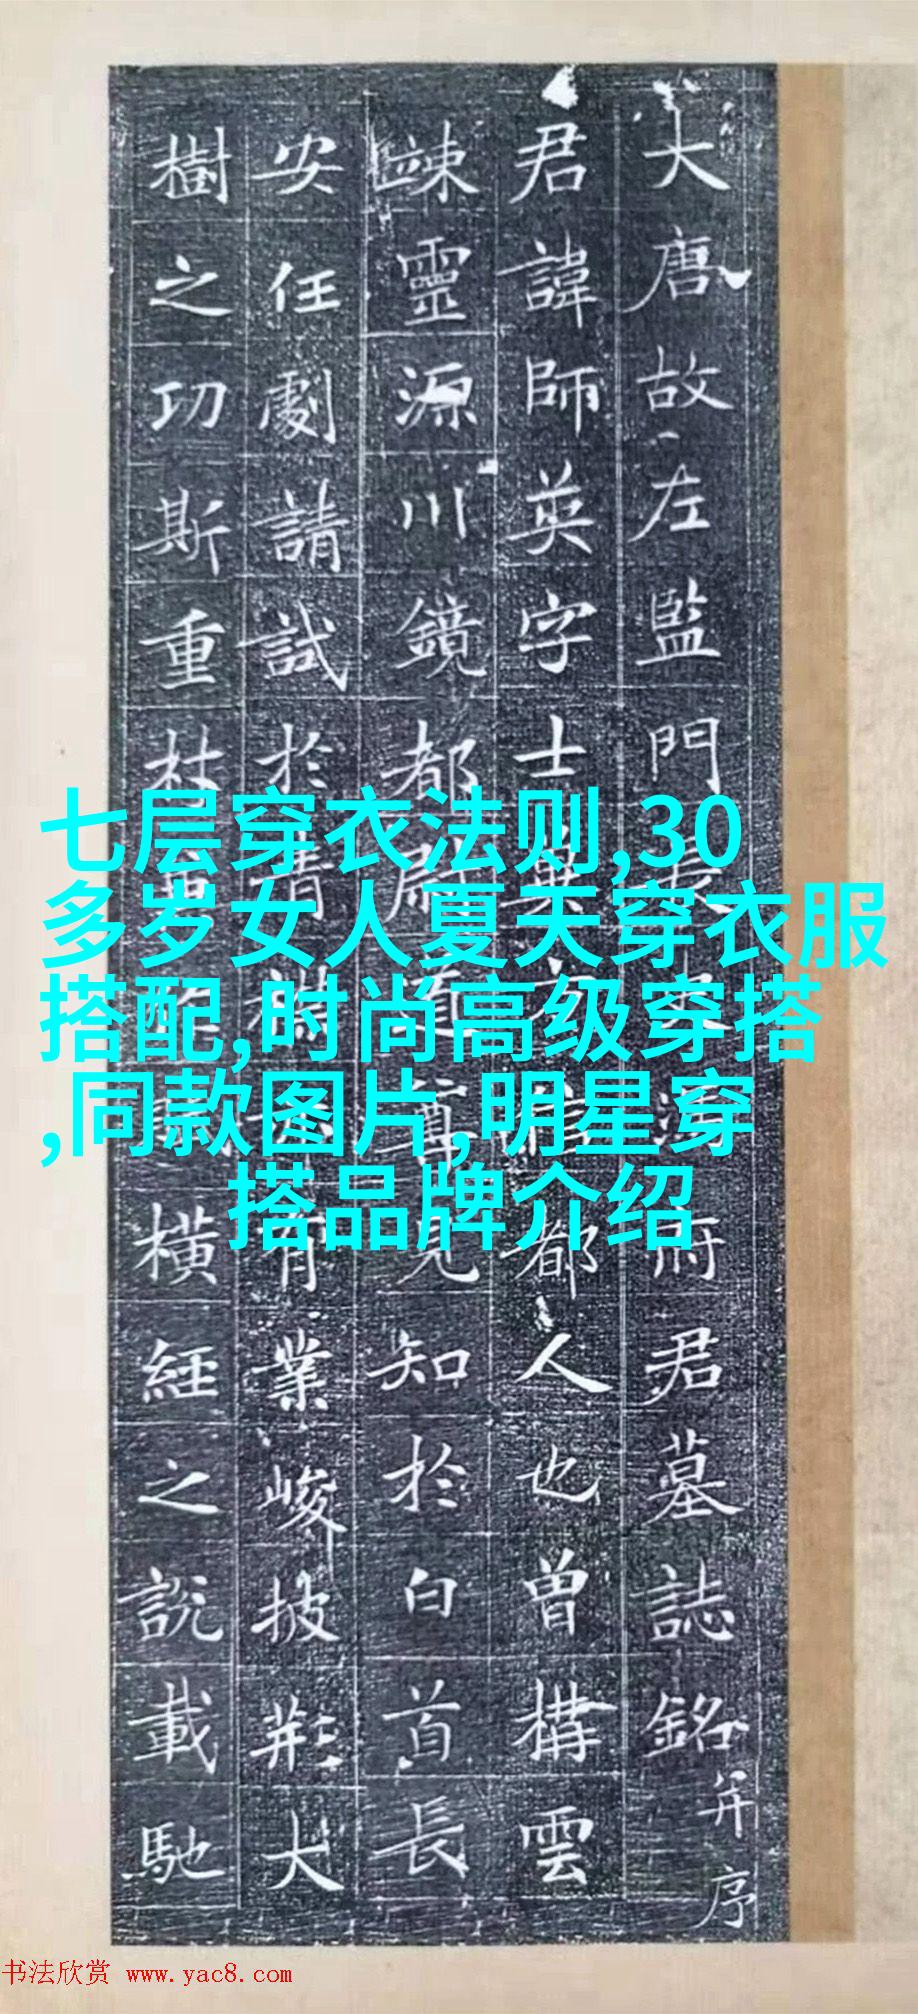 大唐故左監門府君墓誌銘并序
君諱師英字士都人也曾構雲
竦靈源川鏡都尉道見知於白首長
安任劇請試於有業峻披荊大
樹之功斯重杜橫經之說載馳
七层穿衣法则,30
多岁女人夏天穿衣服
搭配,时尚高级穿搭
,同款图片,明星穿
搭品牌介绍
书法欣赏 www.yac8.com